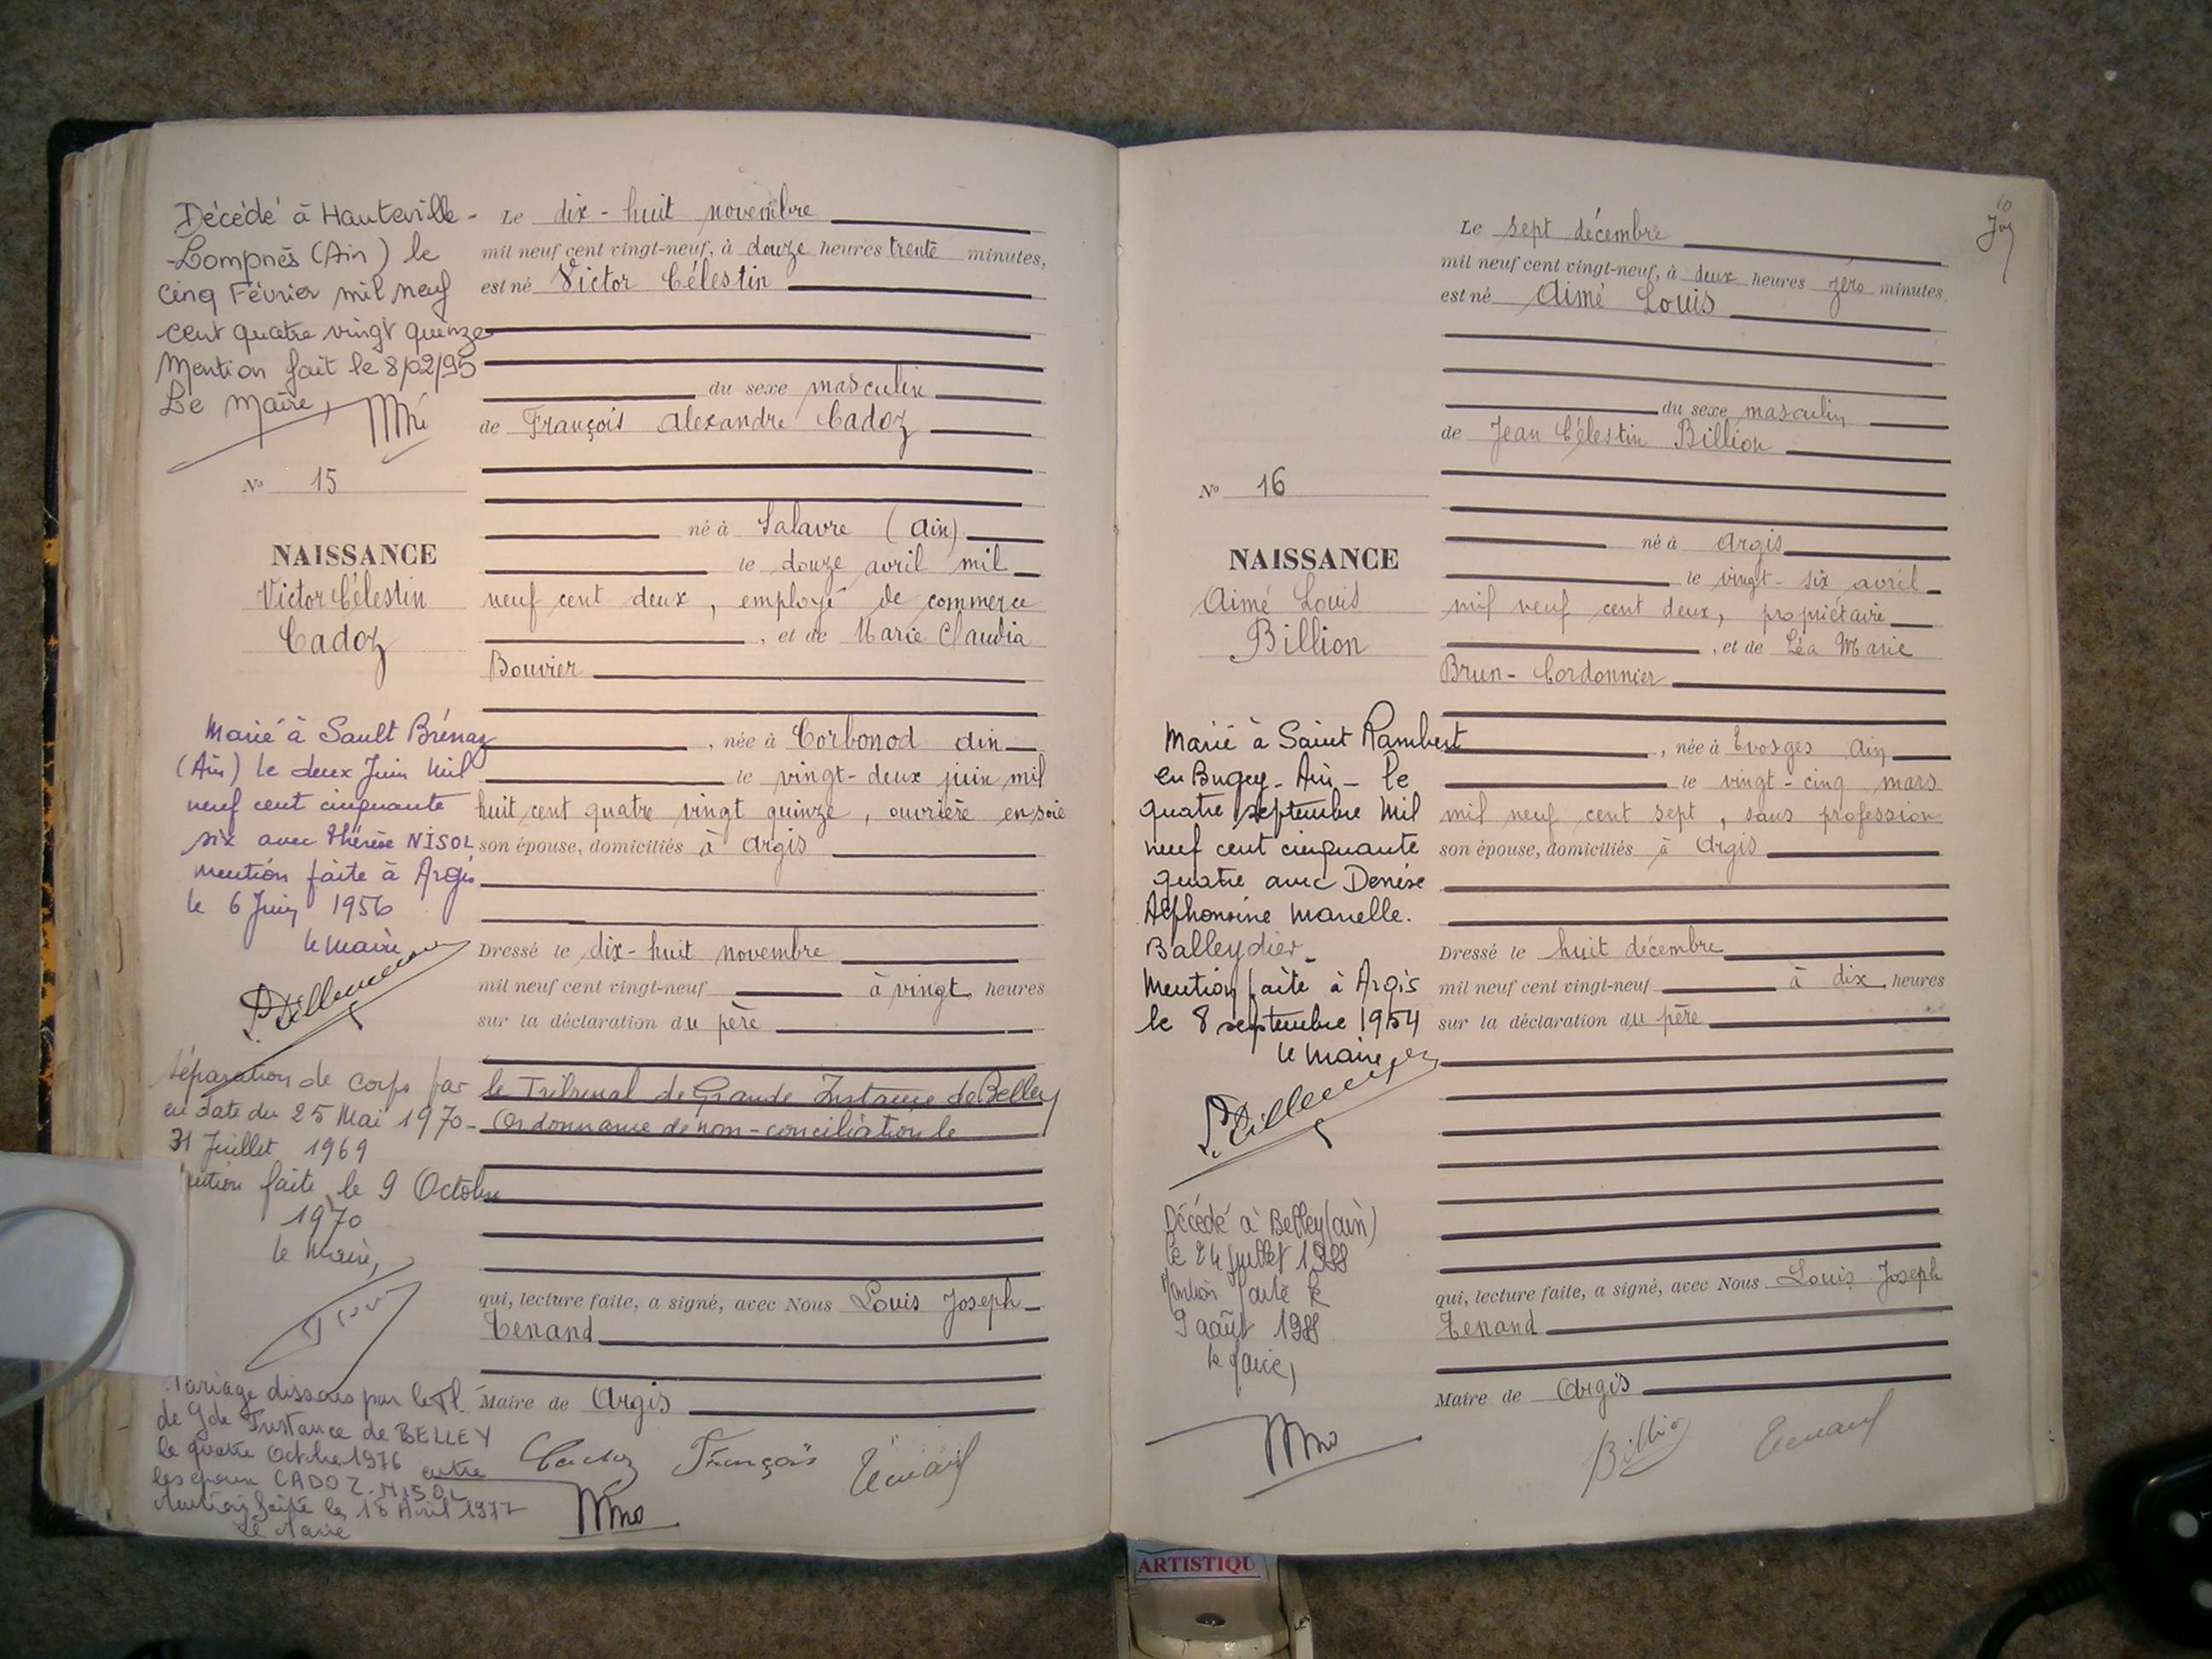 Décédé à Hauteville-
-Lompnès (Ain) le
cinq Février mil neuf
cent quatre vingt quinze
Mention fait le 8/02/95
Le Maire,
N° 15
NAISSANCE
Victor Célestin
Cadoz
Marié à Sault Brénaz
(Ain) le deux Juin mil
neuf cent cinquante
six avec Thérèse NISOL
mention faite à Argis
le 6 Juin 1956
le maire
Séparation de corps par le Tribunal de Grande Instance de Belley
en date du 25 Mai 1970 - Ordonnance de non-conciliation le
31 Juillet 1969
faite le 9 Octobre
1970
le Maire,
Mariage dissous par le Tl.
de Gde Instance de BELLEY
le quatre Octobre 1976 entre
les époux CADOZ-NISOL
Mention faite le 18 Avril 1977
Le Maire
Le dix-huit novembre
mil neuf cent vingt-neuf, à douze heures trente minutes,
est né Victor Célestin
du sexe masculin
de François Alexandre Cadoz
né à Salavre (Ain)
le douze avril mil
neuf cent deux, employé de commerce
, et de Marie Claudia
Bouvier
, née à Corbonod Ain
le vingt-deux juin mil
huit cent quatre vingt quinze, ouvrière en soie
son épouse, domiciliés à Argis
Dressé le dix-huit novembre
mil neuf cent vingt-neuf à vingt heures
sur la déclaration du père
qui, lecture faite, a signé, avec Nous Louis Joseph
Tenand
Maire de Argis
Cadoz François Tenand
10
N° 16
NAISSANCE
Aimé Louis
Billion
Marié à Saint Rambert
en Bugey - Ain - le
quatre septembre Mil
neuf cent cinquante
quatre avec Denise
Alphonsine Marielle
Balleydier
Mention faite à Argis
le 8 septembre 1954
le maire
Décédé à Belley (Ain)
le 24 juillet 1988
Mention faite le
9 août 1988
le Maire,
Le sept décembre
mil neuf cent vingt-neuf, à deux heures zéro minutes
est né Aimé Louis
du sexe masculin
de Jean Célestin Billion
né à Argis
le vingt-six avril
mil neuf cent deux, propriétaire
, et de Léa Marie
Brun-Cordonnier
, née à Evosges Ain
le vingt-cinq mars
mil neuf cent sept, sans profession
son épouse, domiciliés à Argis
Dressé le huit décembre
mil neuf cent vingt-neuf à dix heures
sur la déclaration du père
qui, lecture faite, a signé, avec Nous Louis Joseph
Tenand
Maire de Argis
Billion Tenand
ARTISTIQU